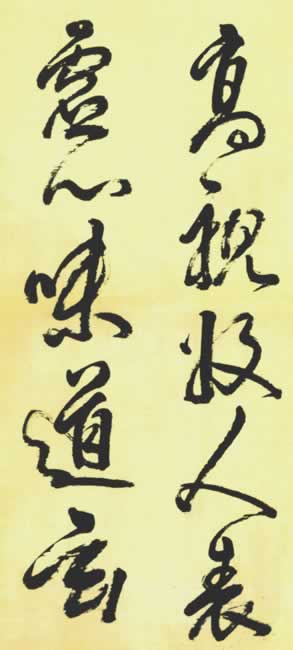 高視收人表
虛心味道玄